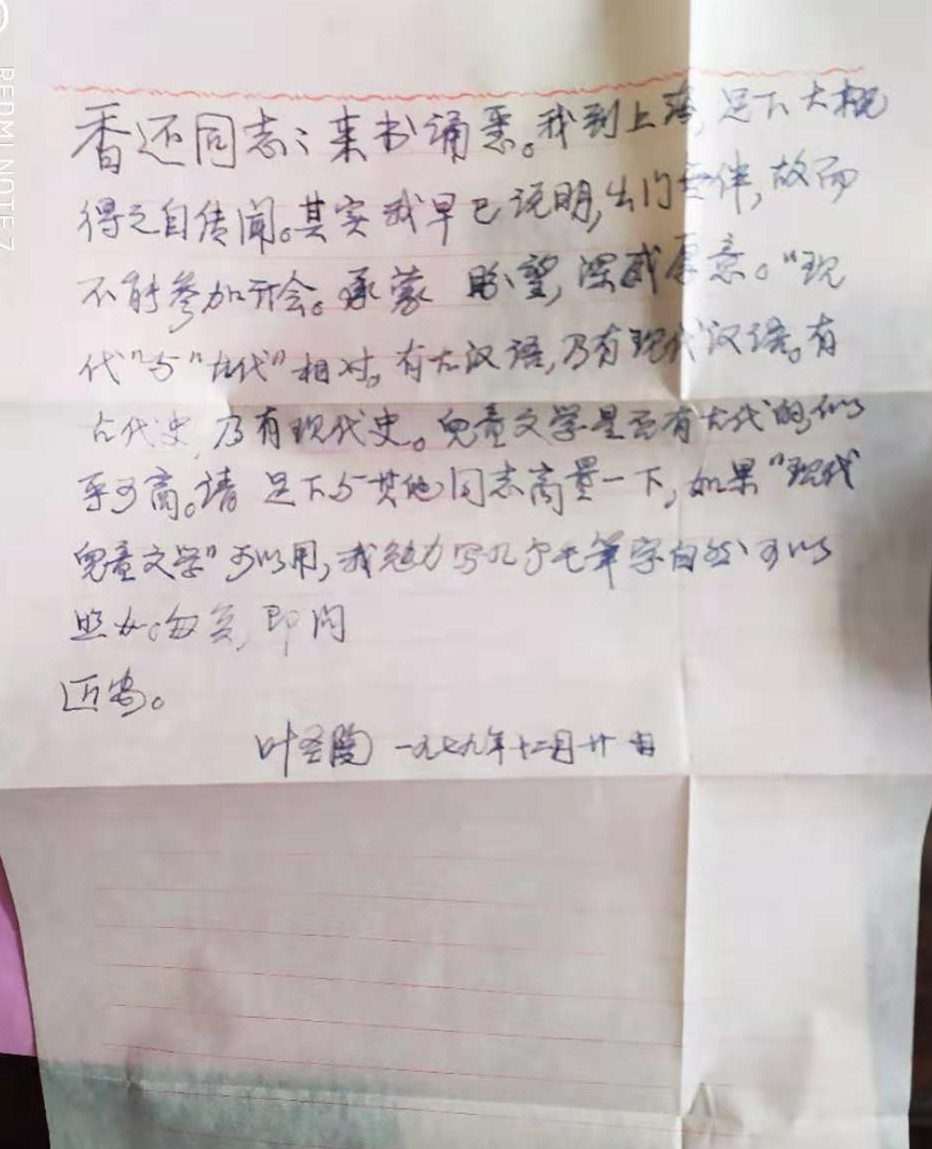 REDMI NOTE 7
香还同志：来书诵悉。我到上海，足下大概
得之自传闻。其实我早已说明，出门无伴，故而
不能参加开会。承蒙 盼望，深感厚意。“现
代”与“古代”相对。有古汉语，乃有现代汉语。有
古代史，乃有现代史。儿童文学是否有古代的，似
乎可商。请 足下与其他同志商量一下，如果“现代
儿童文学”可以用，我勉力写几个毛笔字自然可以
照办。匆复，即问
近安。
叶圣陶 一九七九年十二月廿日